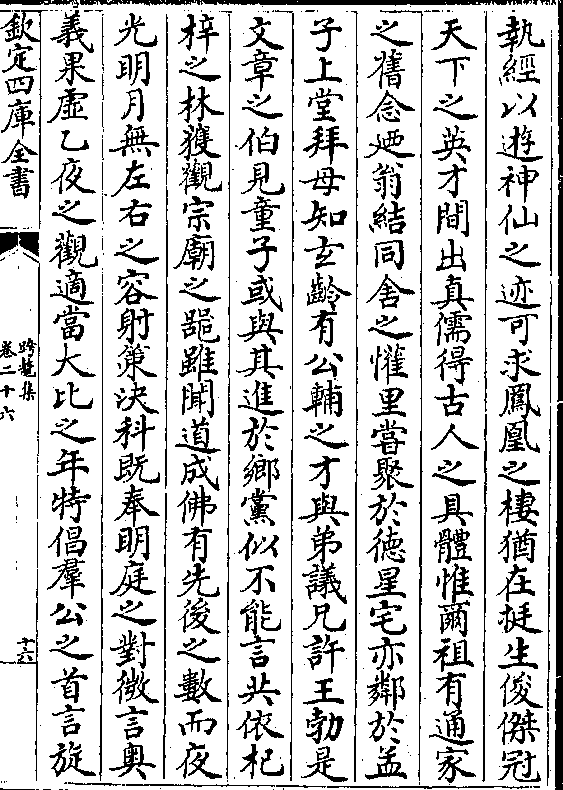 執經以遊神仙之迹可求鳳凰之棲猶在挺生俊傑冠
天下之英才間出真儒得古人之具體惟爾祖有通家
之舊念廼翁結同舍之懽里嘗聚於德星宅亦鄰於孟
子上堂拜母知玄齡有公輔之才與弟議兄許王勃是
文章之伯見童子或與其進於鄉黨似不能言共依杞
梓之林獲觀宗廟之器雖聞道成佛有先後之數而夜
光明月無左右之容射策決科既奉明庭之對微言奧
義果虛乙夜之觀適當大比之年特倡羣公之首言旋
欽定四庫全書
跨鼇集
卷二十六
十六